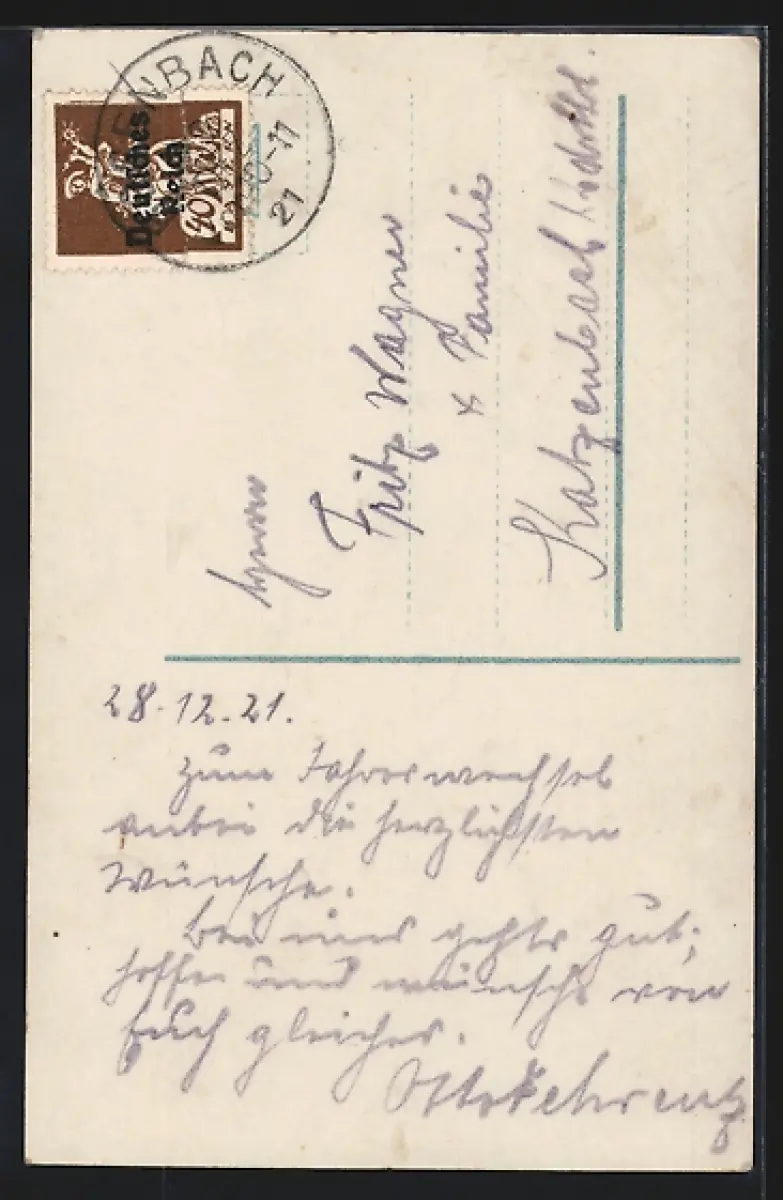 ENBACH
21
Deutsches
Reich
40
Herrn
Fritz Wagner
& Familie
Katzenbach
28.12.21.
Zum Jahreswechsel
anbei die herzlichsten
Wünsche.
Bei uns gehts gut,
hoffe und wünsche von
Euch gleiches.
Otto